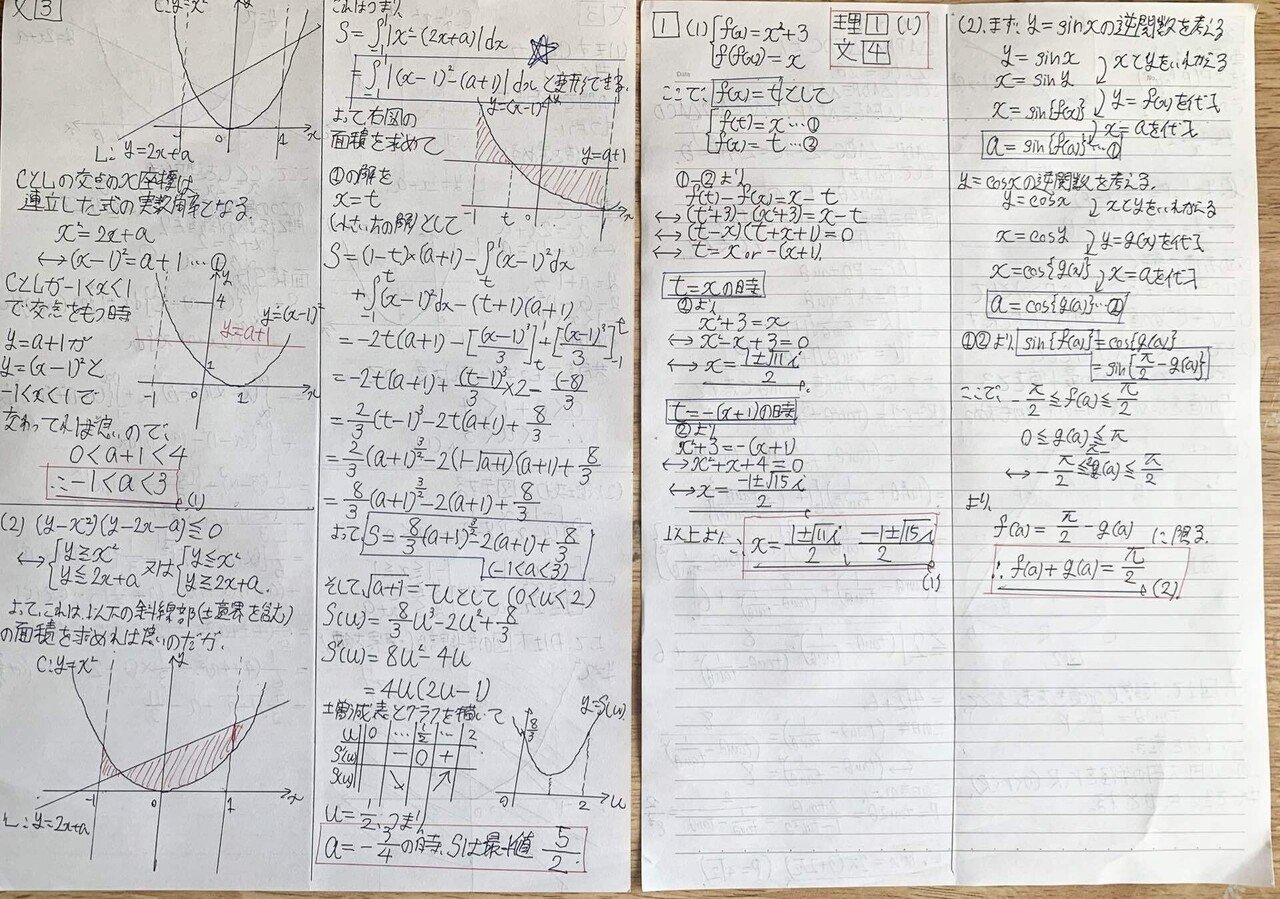 文 3
C: y=x²
x
-1
1
L: y=2x+a
CとLの交点のx座標は
連立した式の実数解となる.
x²=2x+a
⟷(x-1)²=a+1…①
CとLが-1<x<1
で交点をもつ時
y=a+1が
y=(x-1)²と
-1<x<1で
交わってれば良いので、
0<a+1<4
∴-1<a<3
(1)
y
4
y=(x-1)²
y=a+1
1
-1
0
1
x
(2) (y-x²)(y-2x-a)≦0
⟷{y≧x² y≦2x+a 又は{y≦x² y≧2x+a.
よって、これは、以下の斜線部(境界を含む)
の面積を求めれば良いのだが、
C: y=x²
y
-1
0
1
x
L: y=2x+a
これはつまり
S=∫₋₁¹|x²-(2x+a)|dx
=∫₋₁¹|(x-1)²-(a+1)|dxと変形できる.
よって右図の
面積を求めて
y=(x-1)²
y
y=a+1
-1
t
0
x
①の解を
x=t
(小さい方の解)として
S=(1-t)×(a+1)-∫ₜ¹(x-1)²dx
+∫₋₁ᵗ(x-1)²dx-(t+1)(a+1)
=-2t(a+1)-[(x-1)³/3]ₜ¹+[(x-1)³/3]₋₁ᵗ
=-2t(a+1)+(t-1)³/3×2-(-8)/3
=2/3(t-1)³-2t(a+1)+8/3
=2/3(a+1)^(3/2)-2(1-√(a+1))(a+1)+8/3
=8/3(a+1)^(3/2)-2(a+1)+8/3
よってS=8/3(a+1)^(3/2)-2(a+1)+8/3
(-1<a<3)
そして√(a+1)=uとして(0<u<2)
S(u)=8/3u³-2u²+8/3
S'(u)=8u²-4u
=4u(2u-1)
増減表とグラフを描いて
u 0 … 1/2 … 2
S'(u) - 0 +
S(u) ↘ ↗
y=S(u)
8/3
0
2
u
u=1/2,つまり
a=-3/4の時、Sは最小値 5/2.
1 (1) {f(x)=x²+3
f(f(x))=x
理 1 (1)
文 4
ここで、f(x)=tとして
{f(t)=x…①
f(x)=t…②
①-②より
f(t)-f(x)=x-t
⟷(t²+3)-(x²+3)=x-t
⟷(t-x)(t+x+1)=0
⟷t=x or -(x+1).
t=xの時
②より
x²+3=x
⟷x²-x+3=0
⟷x=(1±√11i)/2
t=-(x+1)の時
②より
x²+3=-(x+1)
⟷x²+x+4=0
⟷x=(-1±√15i)/2
以上より∴x=(1±√11i)/2, (-1±√15i)/2
(1)
(2).まず、y=sinxの逆関数を考える
y=sinx
xとyをいれかえる
x=siny
y=f(x)を代入
x=sin{f(x)}
x=aを代入
a=sin{f(a)}…①
y=cosxの逆関数を考える.
y=cosx
xとyをいれかえる
x=cosy
y=g(x)を代入
x=cos{g(x)}
x=aを代入
a=cos{g(a)}…②
①②より sin{f(a)}=cos{g(a)}
=sin{π/2-g(a)}
ここで、-π/2≦f(a)≦π/2
0≦g(a)≦π
より、
f(a)=π/2-g(a) に限る.
∴f(a)+g(a)=π/2
(2).